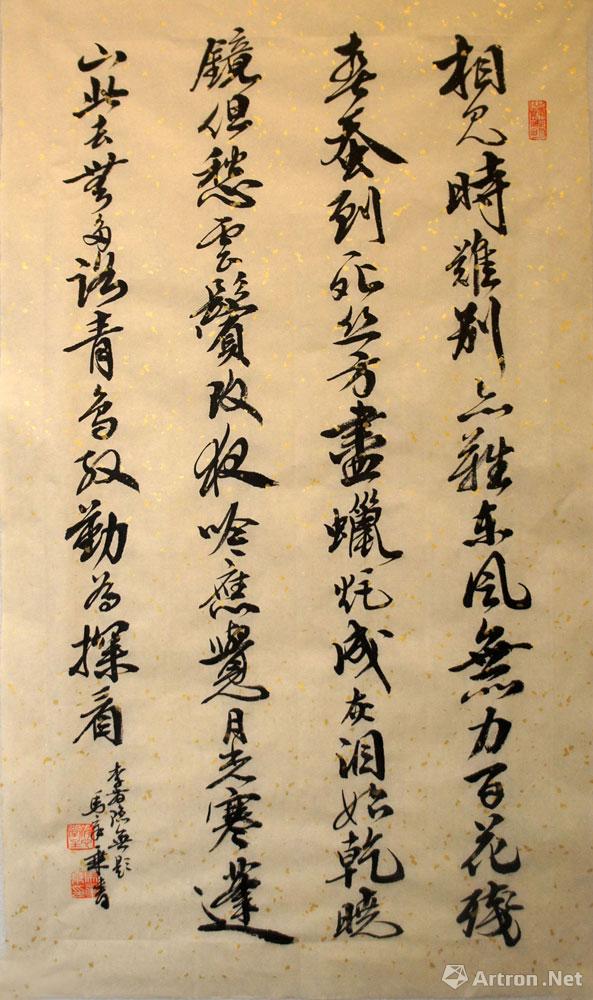 相見時難别亦難東風無力百花殘
春蚕到死丝方盡蠟炬成灰泪始乾曉
鏡但愁雲鬢改夜吟應覺月光寒蓬
山此去無多路青鳥殷勤為探看
李商隐無題
馬書
Artron.Net